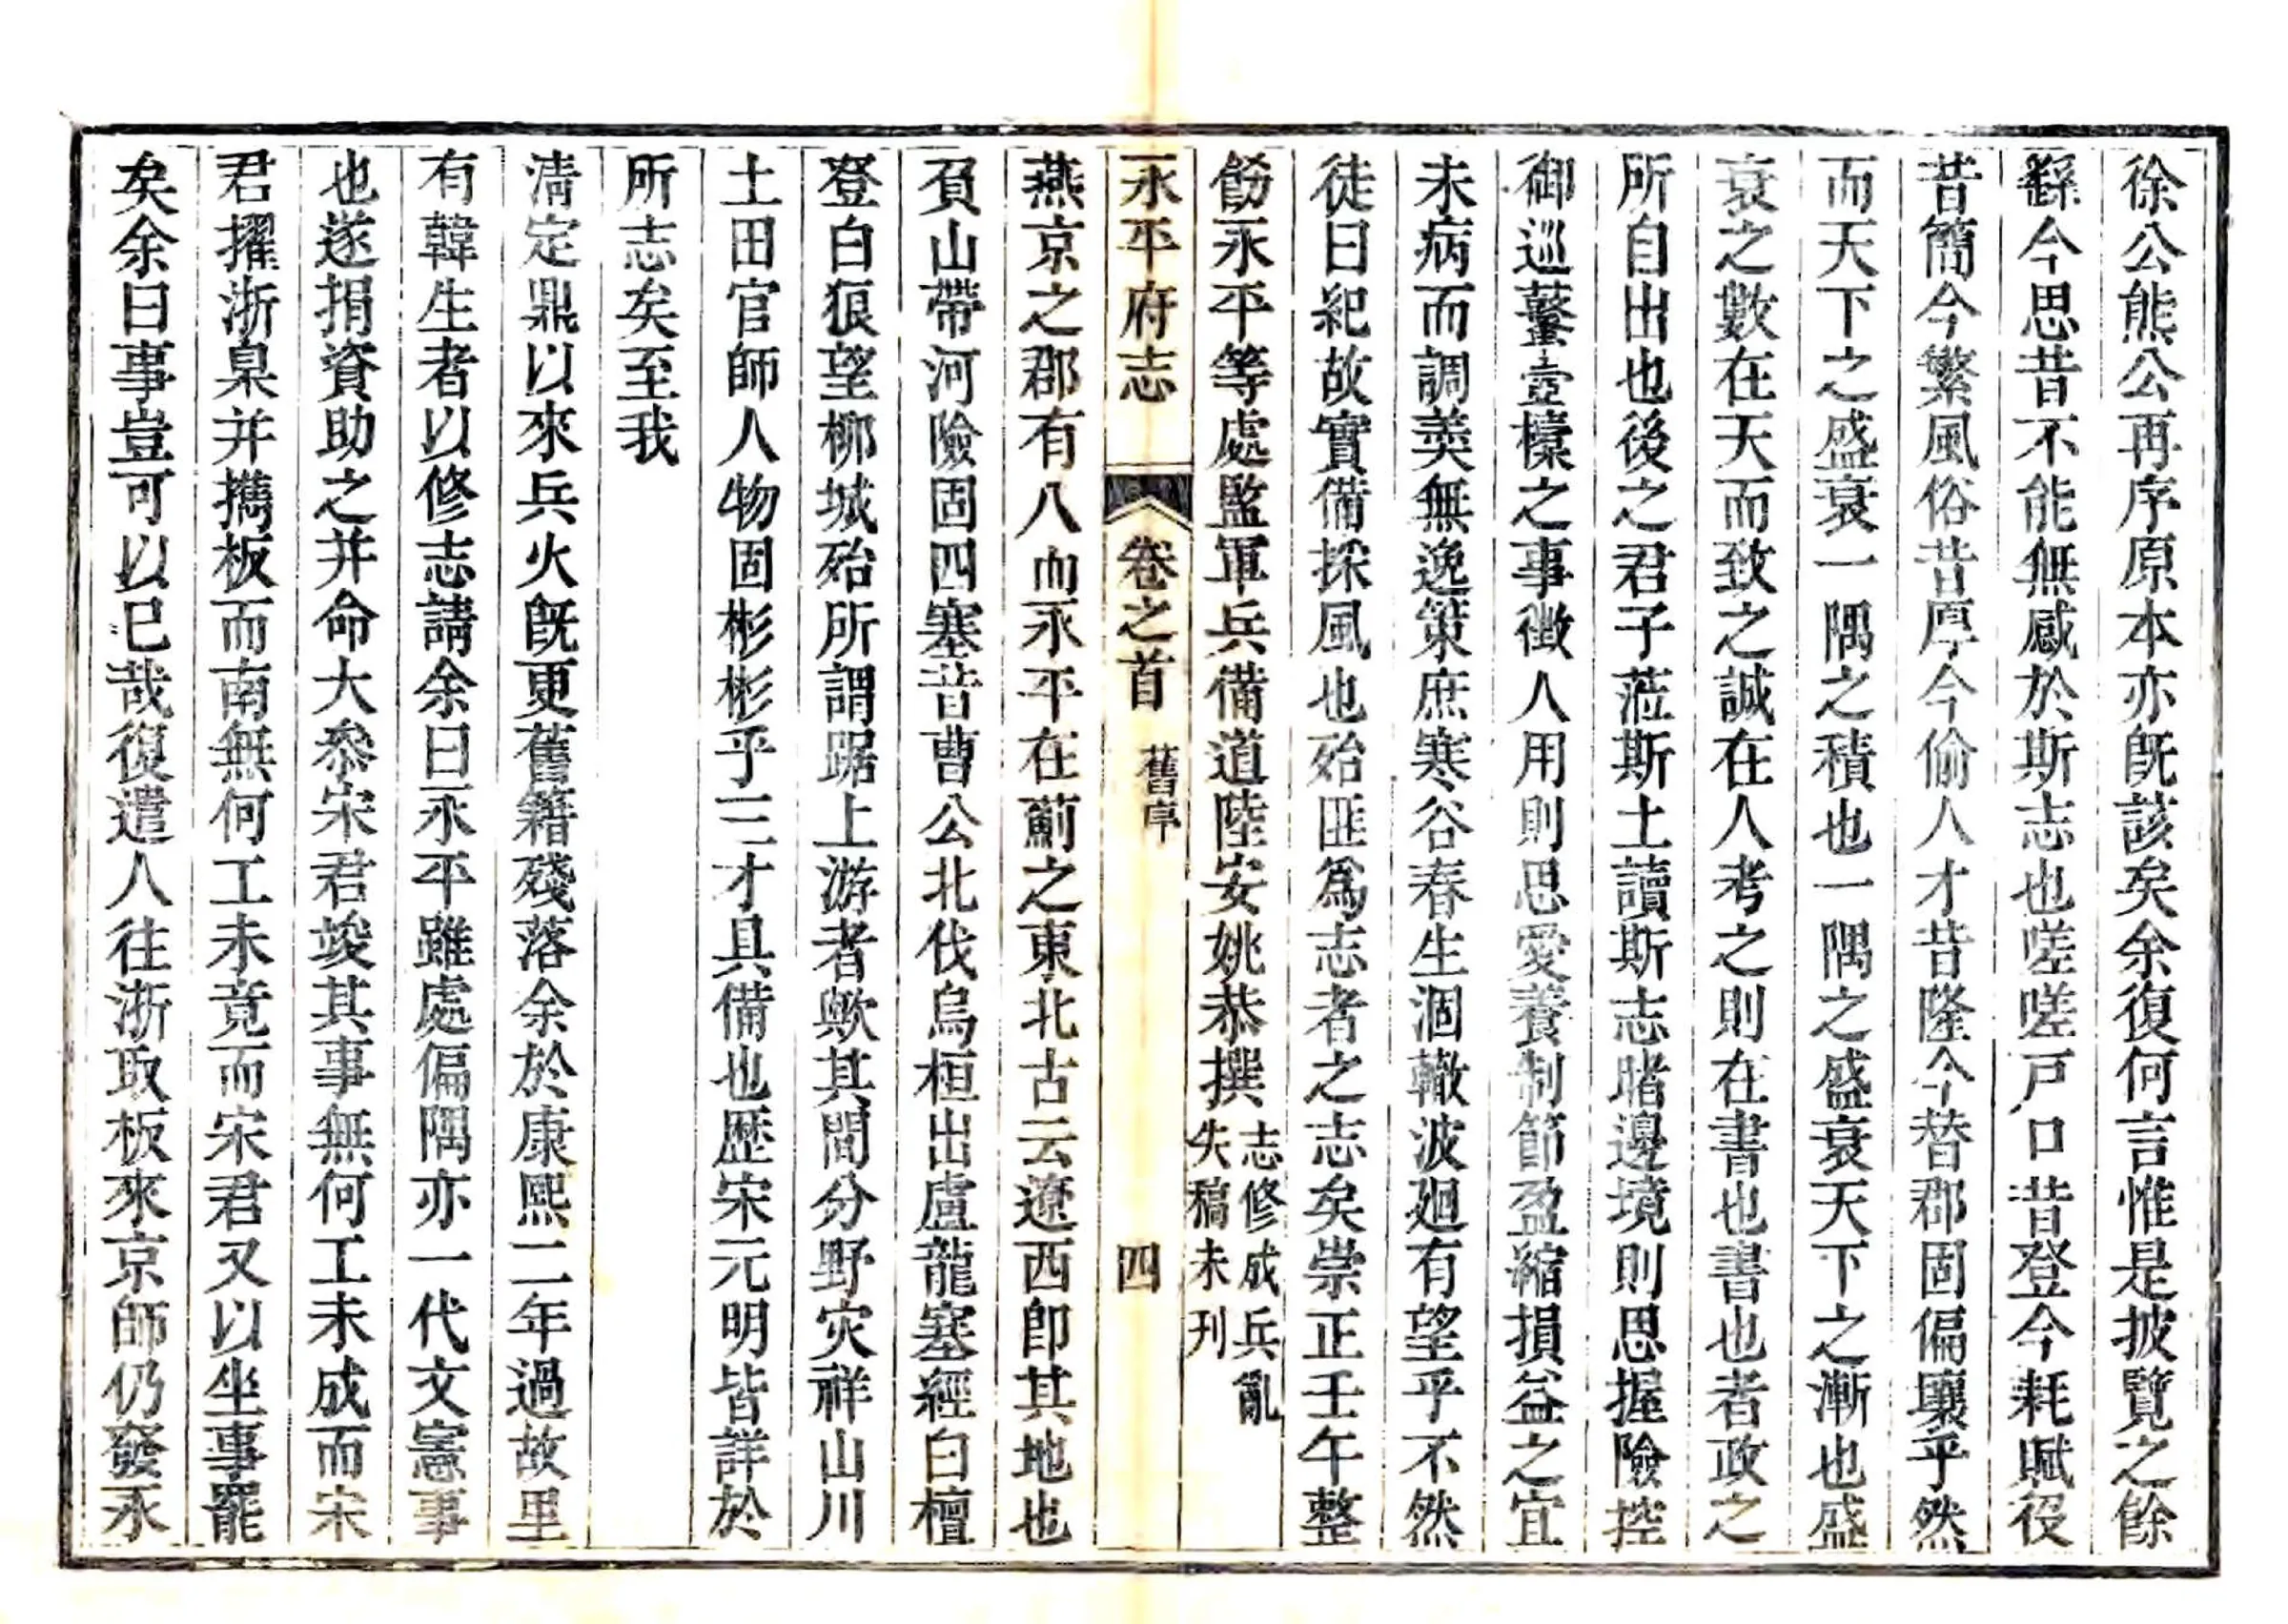 徐公熊公再序原本亦旣該矣余復何言惟是披覽之餘
繇今思昔不能無感於斯志也嗟嗟戸口昔登今耗賦役
昔簡今繁風俗昔厚今偷人才昔隆今替郡固偏壤乎然
而天下之盛衰一隅之積也一隅之盛衰天下之漸也盛
衰之數在天而致之誠在人考之則在書也書也者政之
所自出也後之君子蒞斯土讀斯志睹邊境則思握險控
御巡鼛壼橐之事徵人用則思愛養制節盈縮損益之宜
未病而調羮無逸策庶寒谷春生涸轍波廻有望乎不然
徒曰紀故實備採風也殆匪爲志者之志矣崇正壬午整
飭永平等處監軍兵備道陸安姚恭撰
志修成兵亂
失稿未刊
永平府志
卷之首
舊序
四
燕京之郡有八而永平在薊之東北古云遼西卽其地也
負山帶河險固四塞昔曹公北伐烏桓出盧龍塞經白檀
登白狼望柳城殆所謂踞上游者歟其間分野灾祥山川
土田官師人物固彬彬乎三才具備也歷宋元明皆詳於
所志矣至我
淸定鼎以來兵火旣更舊籍殘落余於康熙二年過故里
有韓生者以修志請余曰永平雖處偏隅亦一代文憲事
也遂捐資助之并命大叅宋君竣其事無何工未成而宋
君擢浙臬并攜板而南無何工未竟而宋君又以坐事罷
矣余曰事豈可以已哉復遣人往浙取板來京師仍發永